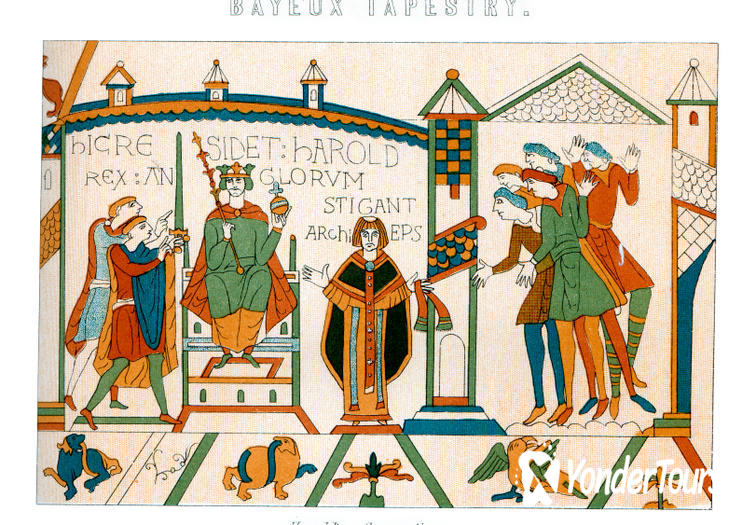 BAYEUX TAPESTRY.
hIC RE SIDET : hAROLD
REX : AN GLORVM
STIGANT
ARChI EPS
YonderTours